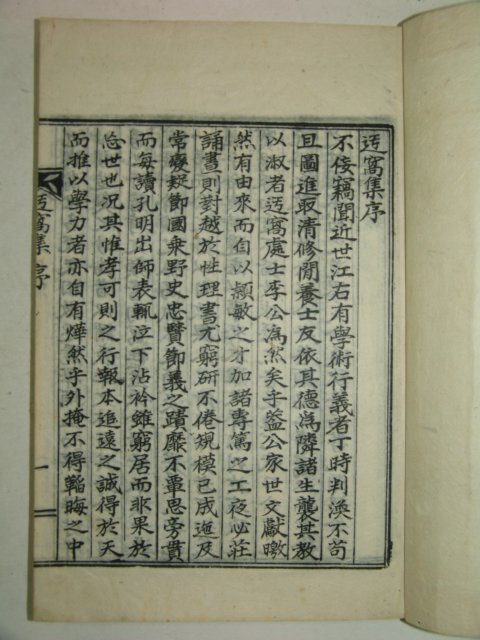 迃窩集序
不侫竊聞近世江右有學術行義者丁時判渙不苟
且圖進取清修閒養士友依其德爲隣諸生襲其教
以淑者迃窩處士李公爲然矣乎盖公家世文獻曒
然有由來而自以穎敏之才加諸專篤之工夜必莊
誦晝則對越於性理書尤窮研不倦規模已成迤及
常變疑節國乘野史忠賢節義之蹟靡不畢思旁貫
而每讀孔明出師表輒泣下沾衿雖窮居而非果於
忘世也况其惟孝可則之行報本追遠之誠得於天
而推以學力者亦自有燁然乎外掩不得韜晦之中
迃窩集 序 一